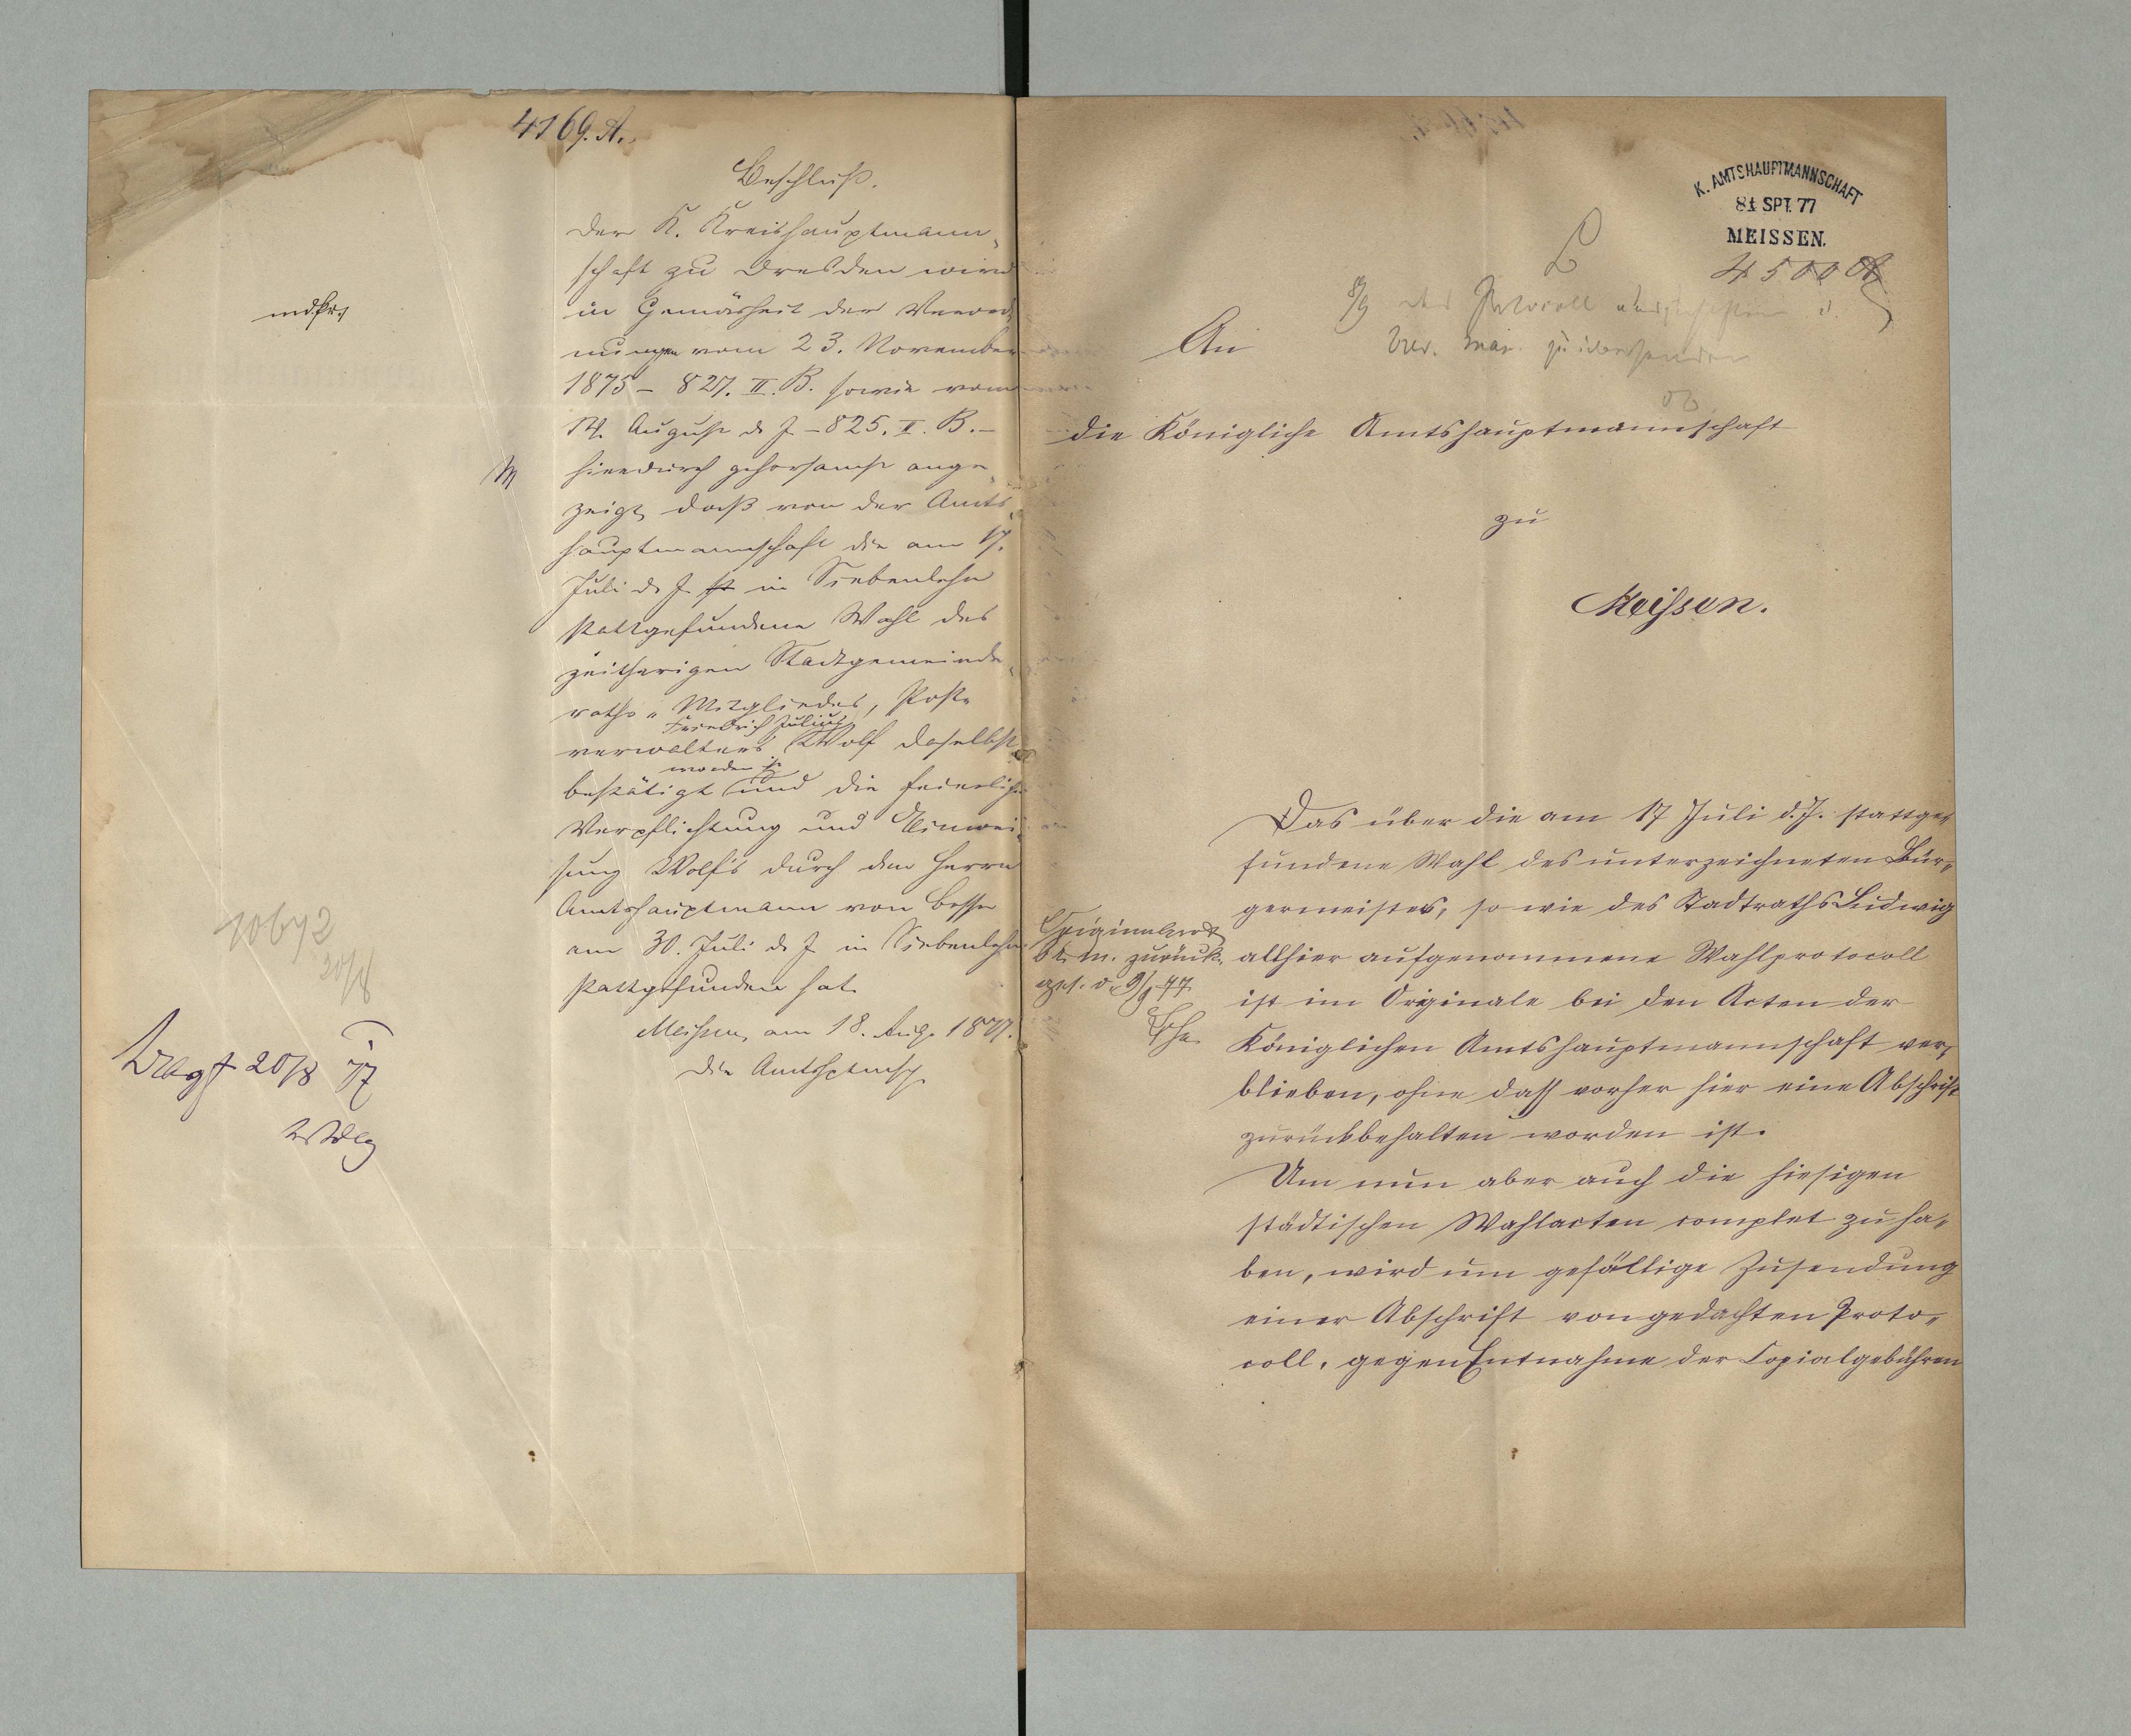 4169. A.
Beschluß.
Der K. Kreishauptmann-
schaft zu Dresden wird
in Gemäsheit der Verord-
nungen vom 23. November
1875 – 827. II. B. sowie vom
August d. J. – 825. II. B. –
hierdurch gehorsamst ange-
zeigt, daß von der Amts-
hauptmannschaft die am 17.
Juli d. J. in Siebenlehn
stattgefundene Wahl des
zeitherigen Stadtgemeinde-
raths-Mitgliedes, Post-
Friedrich Julius
verwalters Wolf daselbst
worden ist
bestätigt und die feierliche
Verpflichtung und Einwei-
sung Wolf's durch den Herrn
Amtshauptmann von Bosse
am 30. Juli d. J. in Siebenlehn
stattgefunden hat.
Meißen, am 18. Aug. 1877.
Die Amtshptmsch.
10642
20/8
20/8 77
K. AMTSHAUPTMANNSCHAFT
SPT. 77
MEISSEN.
4500 A
8/9 das Protocoll
zu übersenden
An
die Königliche Amtshauptmannschaft
zu
Meissen.
Das über die am 17 Juli d. J. stattge-
fundene Wahl des unterzeichneten Bür-
germeisters, so wie des Stadtraths Ludwig
allhier aufgenommene Wahlprotocoll
ist im Originale bei den Acten der
Königlichen Amtshauptmannschaft ver-
blieben, ohne dass vorher hier eine Abschrift
zurückbehalten worden ist.
Um nun aber auch die hiesigen
städtischen Wahlacten complet zu ha-
ben, wird um gefällige Zusendung
einer Abschrift von gedachten Proto-
coll, gegen Entnahme der Copialgebühren
b. m. zurück-
ges. d. 9/9 77